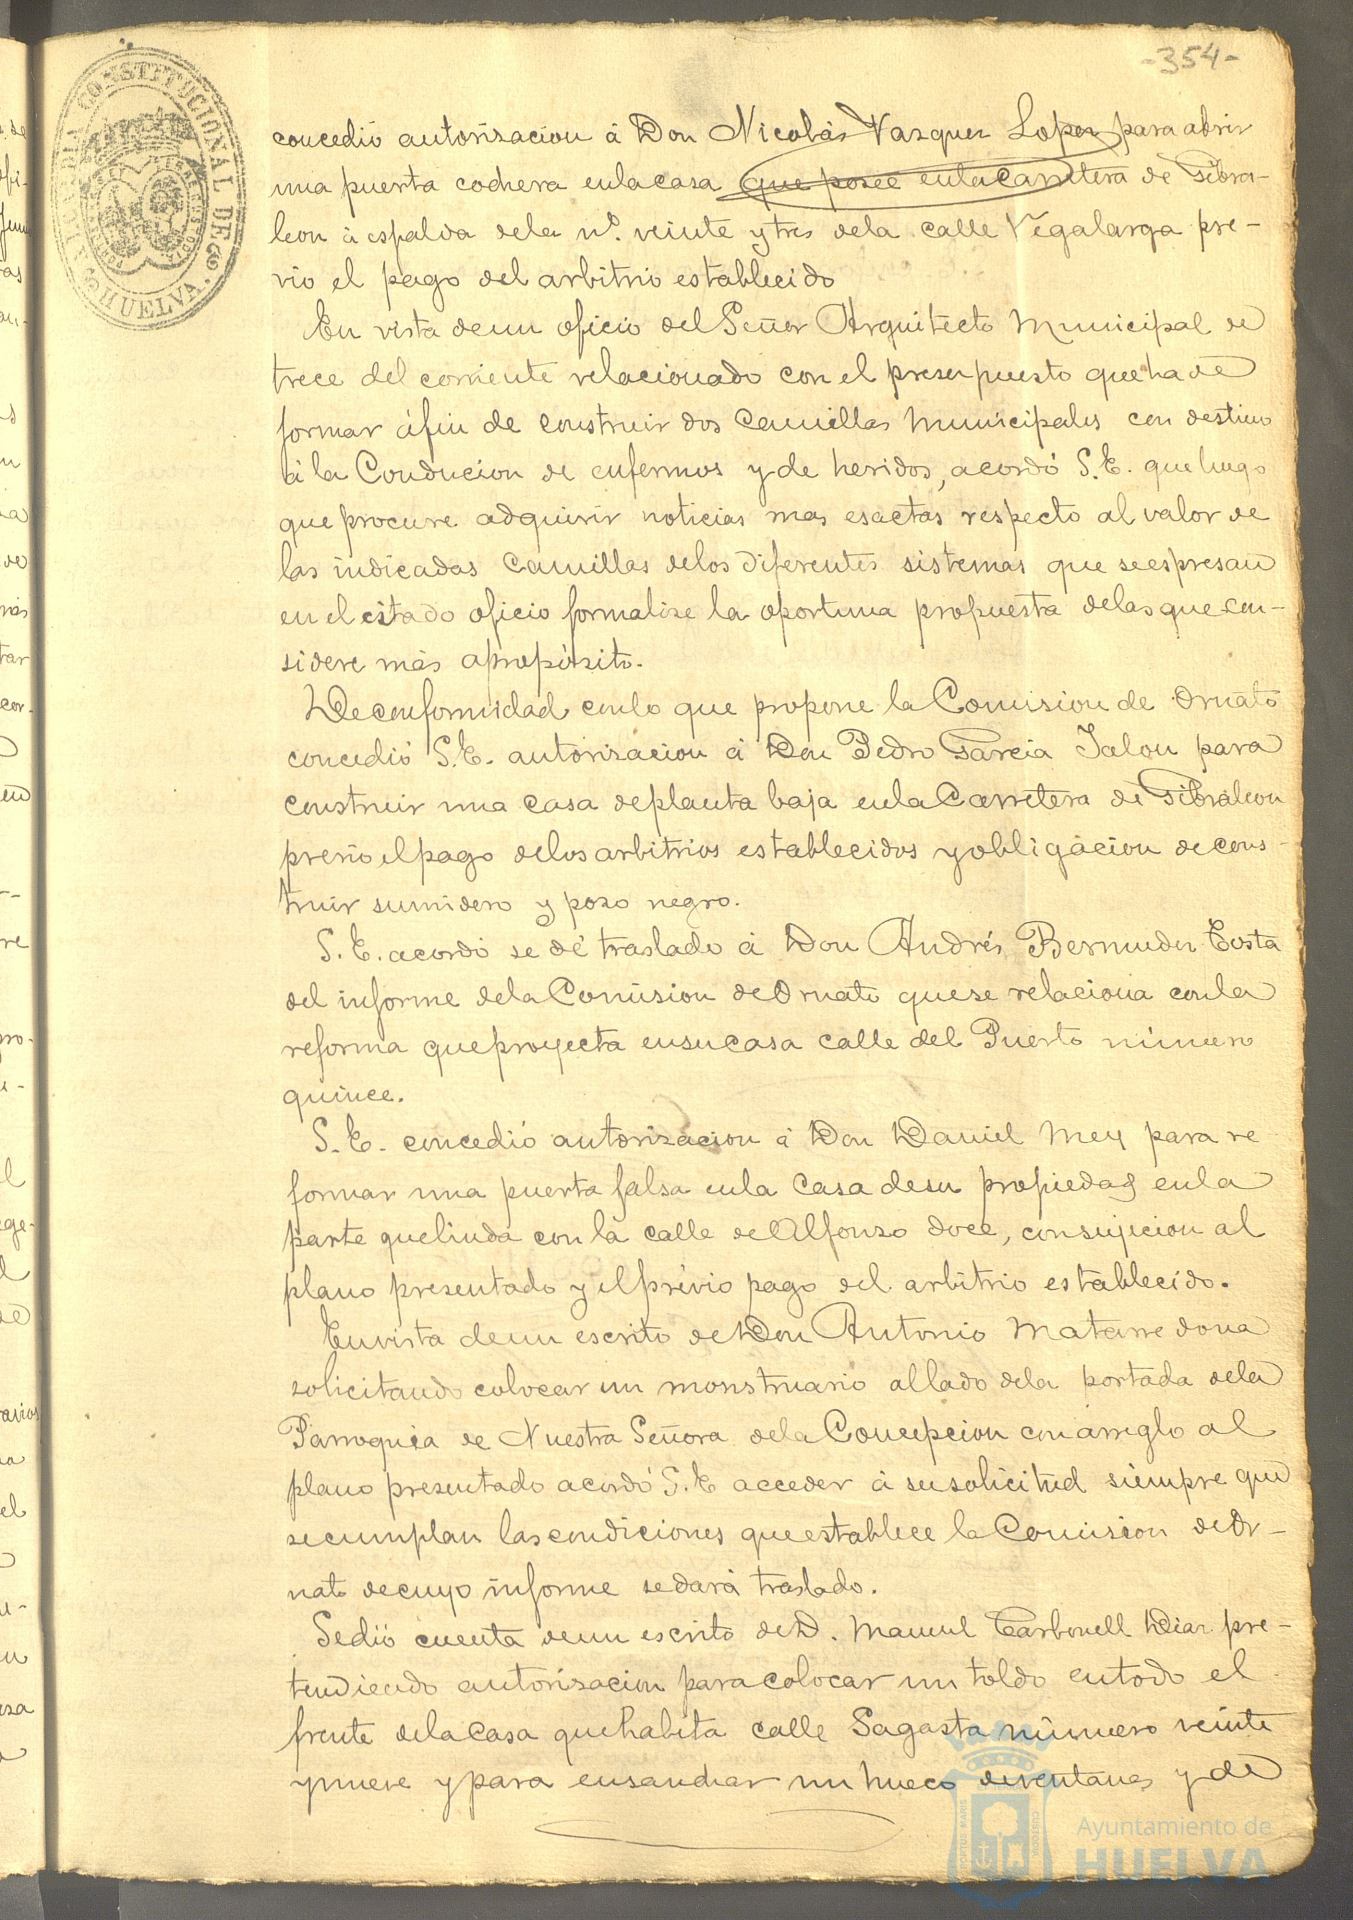 -354-
ALCALDIA CONSTITUCIONAL DE HUELVA.
concedió autorizacion á Don Nicolás Vazquez Lopez para abrir
una puerta cochera en la casa que posee en la Carretera de Gibra-
leon á espalda de la nº. veinte y tres de la calle Vegalarga pre-
vio el pago del arbitrio establecido
En vista de un oficio del Señor Arquitecto Municipal de
trece del corriente relacionado con el presupuesto que ha de
formar á fin de construir dos Camillas Municipales con destino
á la Conducion de enfermos y de heridos, acordó S.E. que luego
que procure adquirir noticias mas esactas respecto al valor de
las indicadas Camillas de los diferentes sistemas que se espresan
en el citado oficio formalise la oportuna propuesta de las que con-
sidere más apropósito.
De conformidad con lo que propone la Comision de Ornato
concedió S.E. autorizacion á Don Pedro Garcia Jalon para
construir una casa de planta baja en la Carretera de Gibraleon
previo el pago de los arbitrios establecidos y obligacion de cons-
truir sumidero y pozo negro.
S.E. acordó se dé traslado á Don Andrés Bermudez Costa
del informe de la Comision de Ornato que se relaciona con la
reforma que proyecta en su casa calle del Puerto número
quince.
S.E. concedió autorizacion á Don Daniel Mey para re
formar una puerta falsa en la casa de su propiedad en la
parte que linda con la calle de Alfonso doce, con sujecion al
plano presentado y el prévio pago del arbitrio establecido.
En vista de un escrito de Don Antonio Matarredona
solicitando colocar un monstruario al lado de la portada de la
Parroquia de Nuestra Señora de la Concepcion con arreglo al
plano presentado acordó S.E acceder á su solicitud siempre que
se cumplan las condiciones que establece la Comision de Or-
nato de cuyo informe se dará traslado.
Se dió cuenta de un escrito de D. Manuel Carbonell Diaz pre-
tendiendo autorizacion para colocar un toldo en todo el
frente de la casa que habita calle Sagasta número veinte
y nueve y para ensanchar un hueco de ventanas y de
Ayuntamiento de
HUELVA